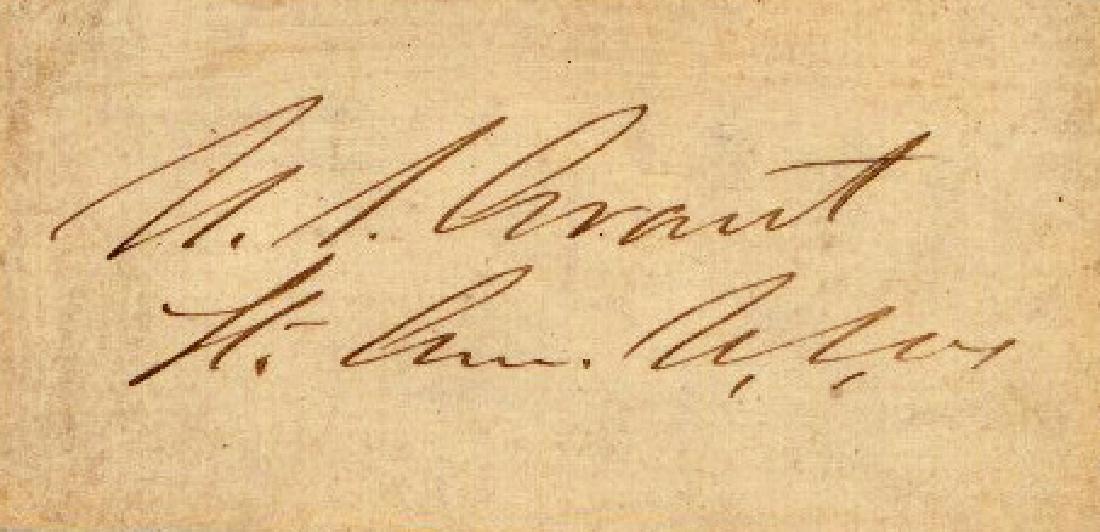 U. S. Grant
Lt. Gen. U. S. A.